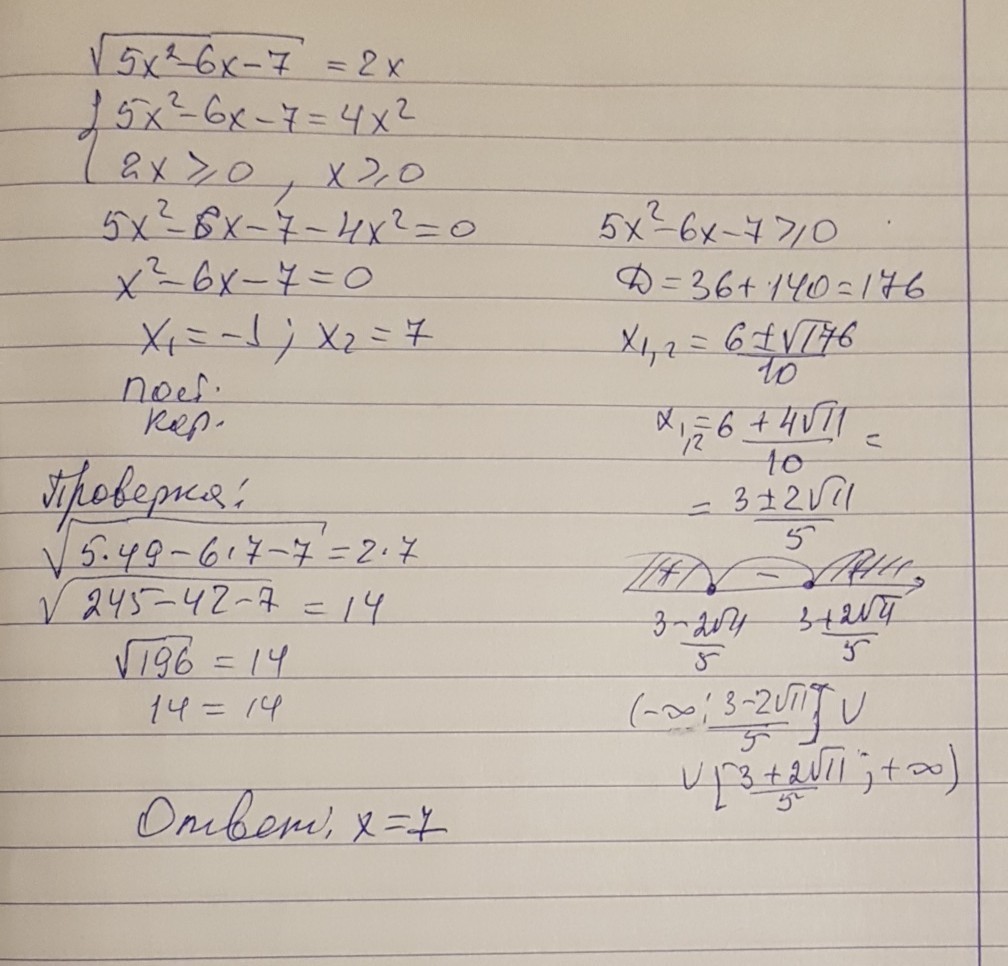 √(5x²-6x-7) = 2x
{ 5x²-6x-7 = 4x²
2x ≥ 0, x ≥ 0
5x²-6x-7-4x² = 0
x²-6x-7 = 0
x₁ = -1; x₂ = 7
пост.
кор.
Проверка:
√(5·49-6·7-7) = 2·7
√(245-42-7) = 14
√196 = 14
14 = 14
Ответ: x = 7
5x²-6x-7 ≥ 0
D = 36+140 = 176
x₁,₂ = (6±√176)/10
x₁,₂ = (6+4√11)/10 =
= (3±2√11)/5
+ - +
(3-2√11)/5 (3+2√11)/5
(-∞; (3-2√11)/5] ∪
∪ [(3+2√11)/5; +∞)